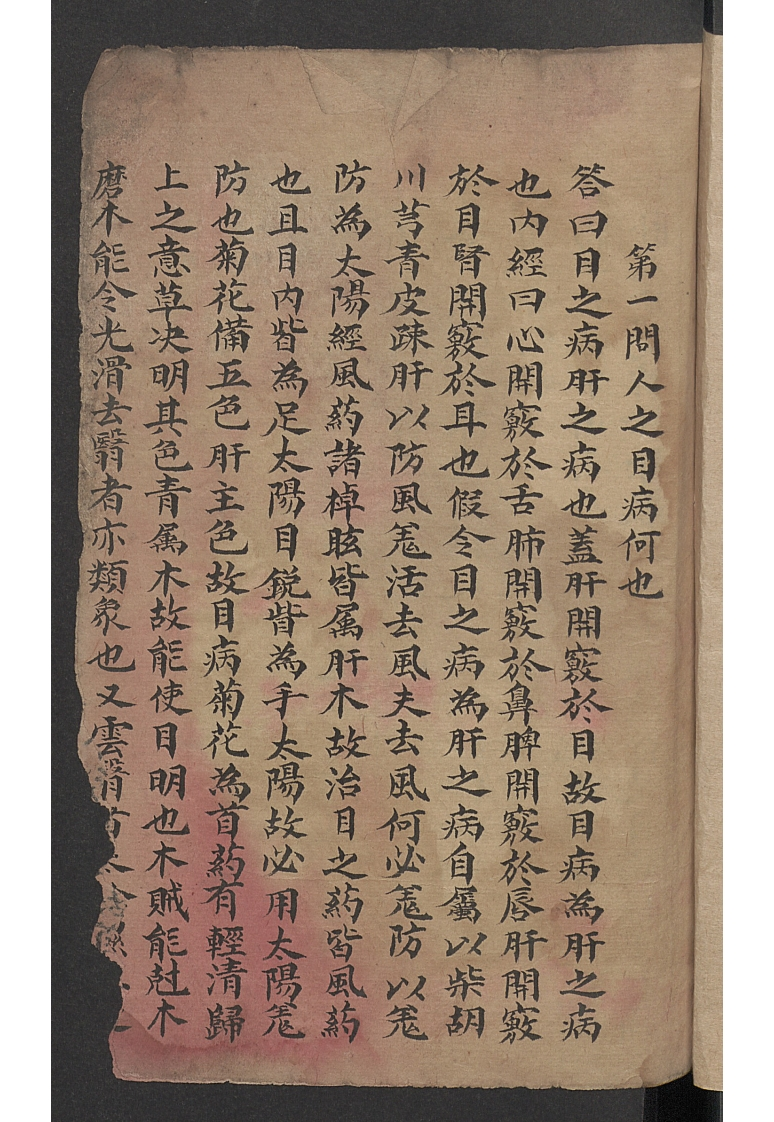 第一問人之目病何也
答曰目之病肝之病也蓋肝開竅於目故目病為肝之病
也内經曰心開竅於舌肺開竅於鼻脾開竅於唇肝開竅
於目腎開竅於耳也假令目之病為肝之病自屬以柴胡
川芎青皮疎肝以防風羗活去風夫去風何必羗防以羗
防為太陽經風药諸棹眩皆属肝木故治目之药皆風药
也且目内眥為足太陽目鋭眥為手太陽故必用太陽羗
防也菊花備五色肝主色故目病菊花為首药有輕清歸
上之意草决明其色青属木故能使目明也木賊能尅木
磨木能令光滑去翳者亦類象也又雲翳